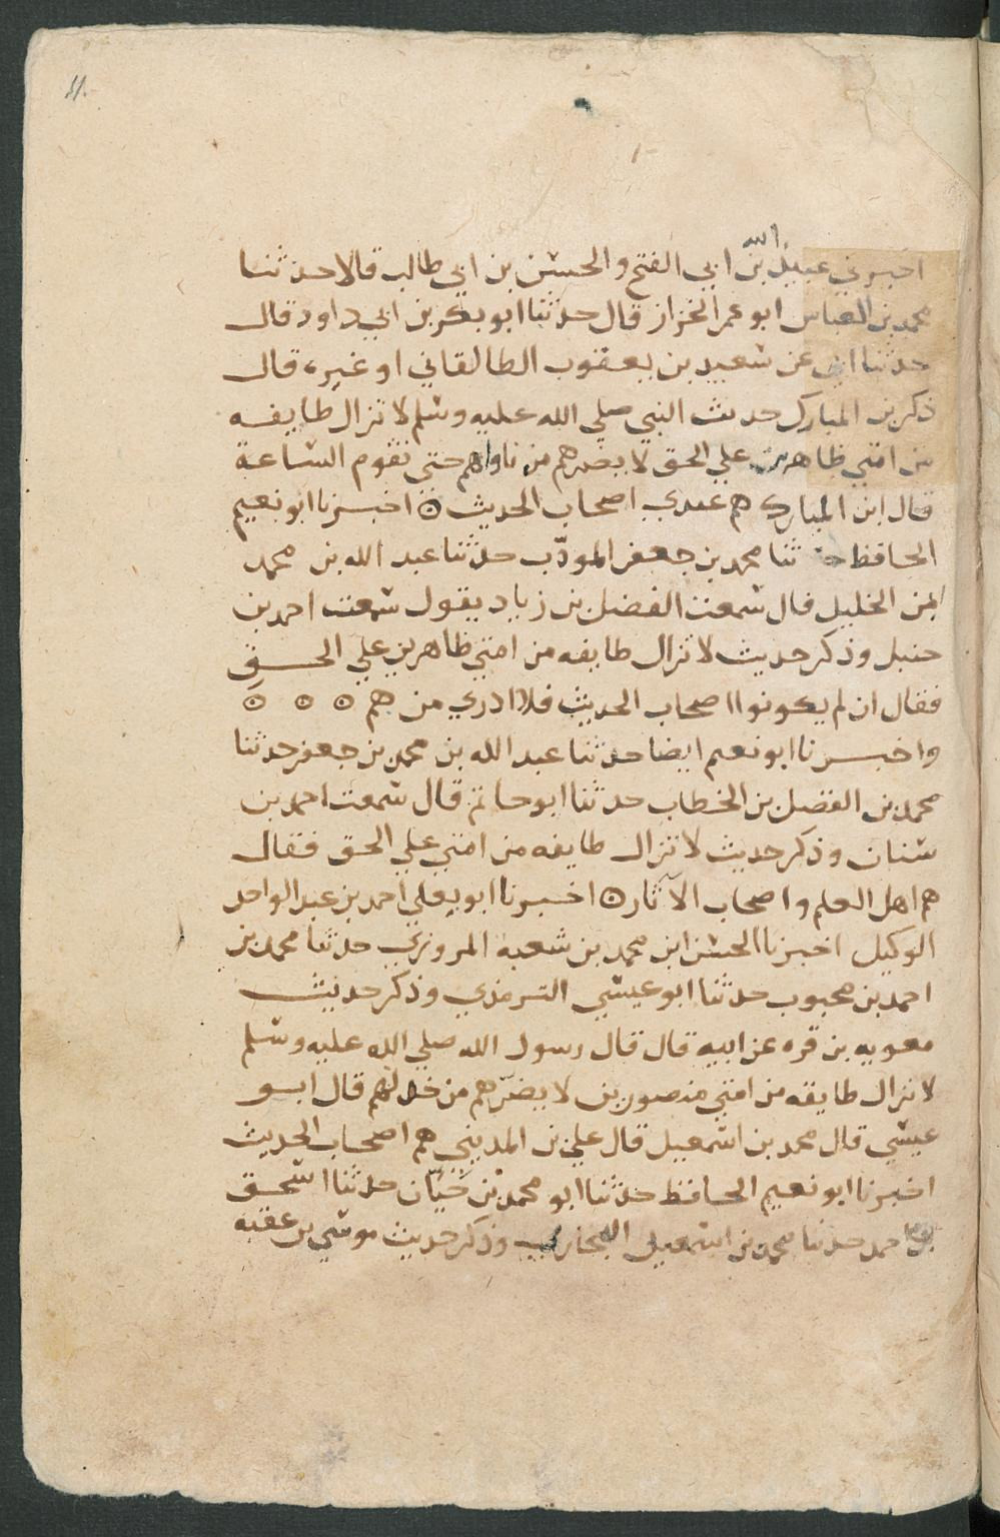 اخبرني عبيد الله بن ابي الفتح والحسن بن ابي طالب قالا حدثنا
محمد بن العباس ابو عمر الخزاز قال حدثنا ابو بكر بن ابي داود قال
حدثنا ابي عن سعيد بن يعقوب الطالقاني او غيره قال
ذكر بن المبارك حديث النبي صلي الله عليه وسلم لا تزال طايفه
من امتي ظاهرين علي الحق لا يضرهم من ناواهم حتى تقوم الساعة
قال ابن المبارك هم عندي اصحاب الحديث ۞ اخبرنا ابو نعيم
الحافظ حدثنا محمد بن جعفر المودّب حدثنا عبد الله بن محمد
ابن الخليل قال سمعت الفضل بن زياد يقول سمعت احمد بن
حنبل وذكر حديث لا تزال طايفه من امتي ظاهرين علي الحق
فقال ان لم يكونوا اصحاب الحديث فلا ادري من هم ۞ ۞ ۞
واخبرنا ابو نعيم ايضا حدثنا عبد الله بن محمد بن جعفر حدثنا
محمد بن الفضل بن الخطاب حدثنا ابو حاتم قال سمعت احمد بن
سنان وذكر حديث لا تزال طايفه من امتي علي الحق فقال
هم اهل العلم واصحاب الآثار ۞ اخبرنا ابو يعلي احمد بن عبد الواحد
الوكيل اخبرنا الحسن ابن محمد بن شعبة المروزي حدثنا محمد بن
احمد بن محبوب حدثنا ابو عيسي الترمذي وذكر حديث
معويه بن قره عن ابيه قال قال رسول الله صلي الله عليه وسلم
لا تزال طايفه من امتي منصورين لا يضرّهم من خذلهم قال ابو
عيسي قال محمد بن اسمعيل قال علي بن المديني هم اصحاب الحديث
اخبرنا ابو نعيم الحافظ حدثنا ابو محمد بن حَيّان حدثنا اسحق
بن احمد حدثنا محمد بن اسمعيل البخاري وذكر حديث موسي بن عقبه